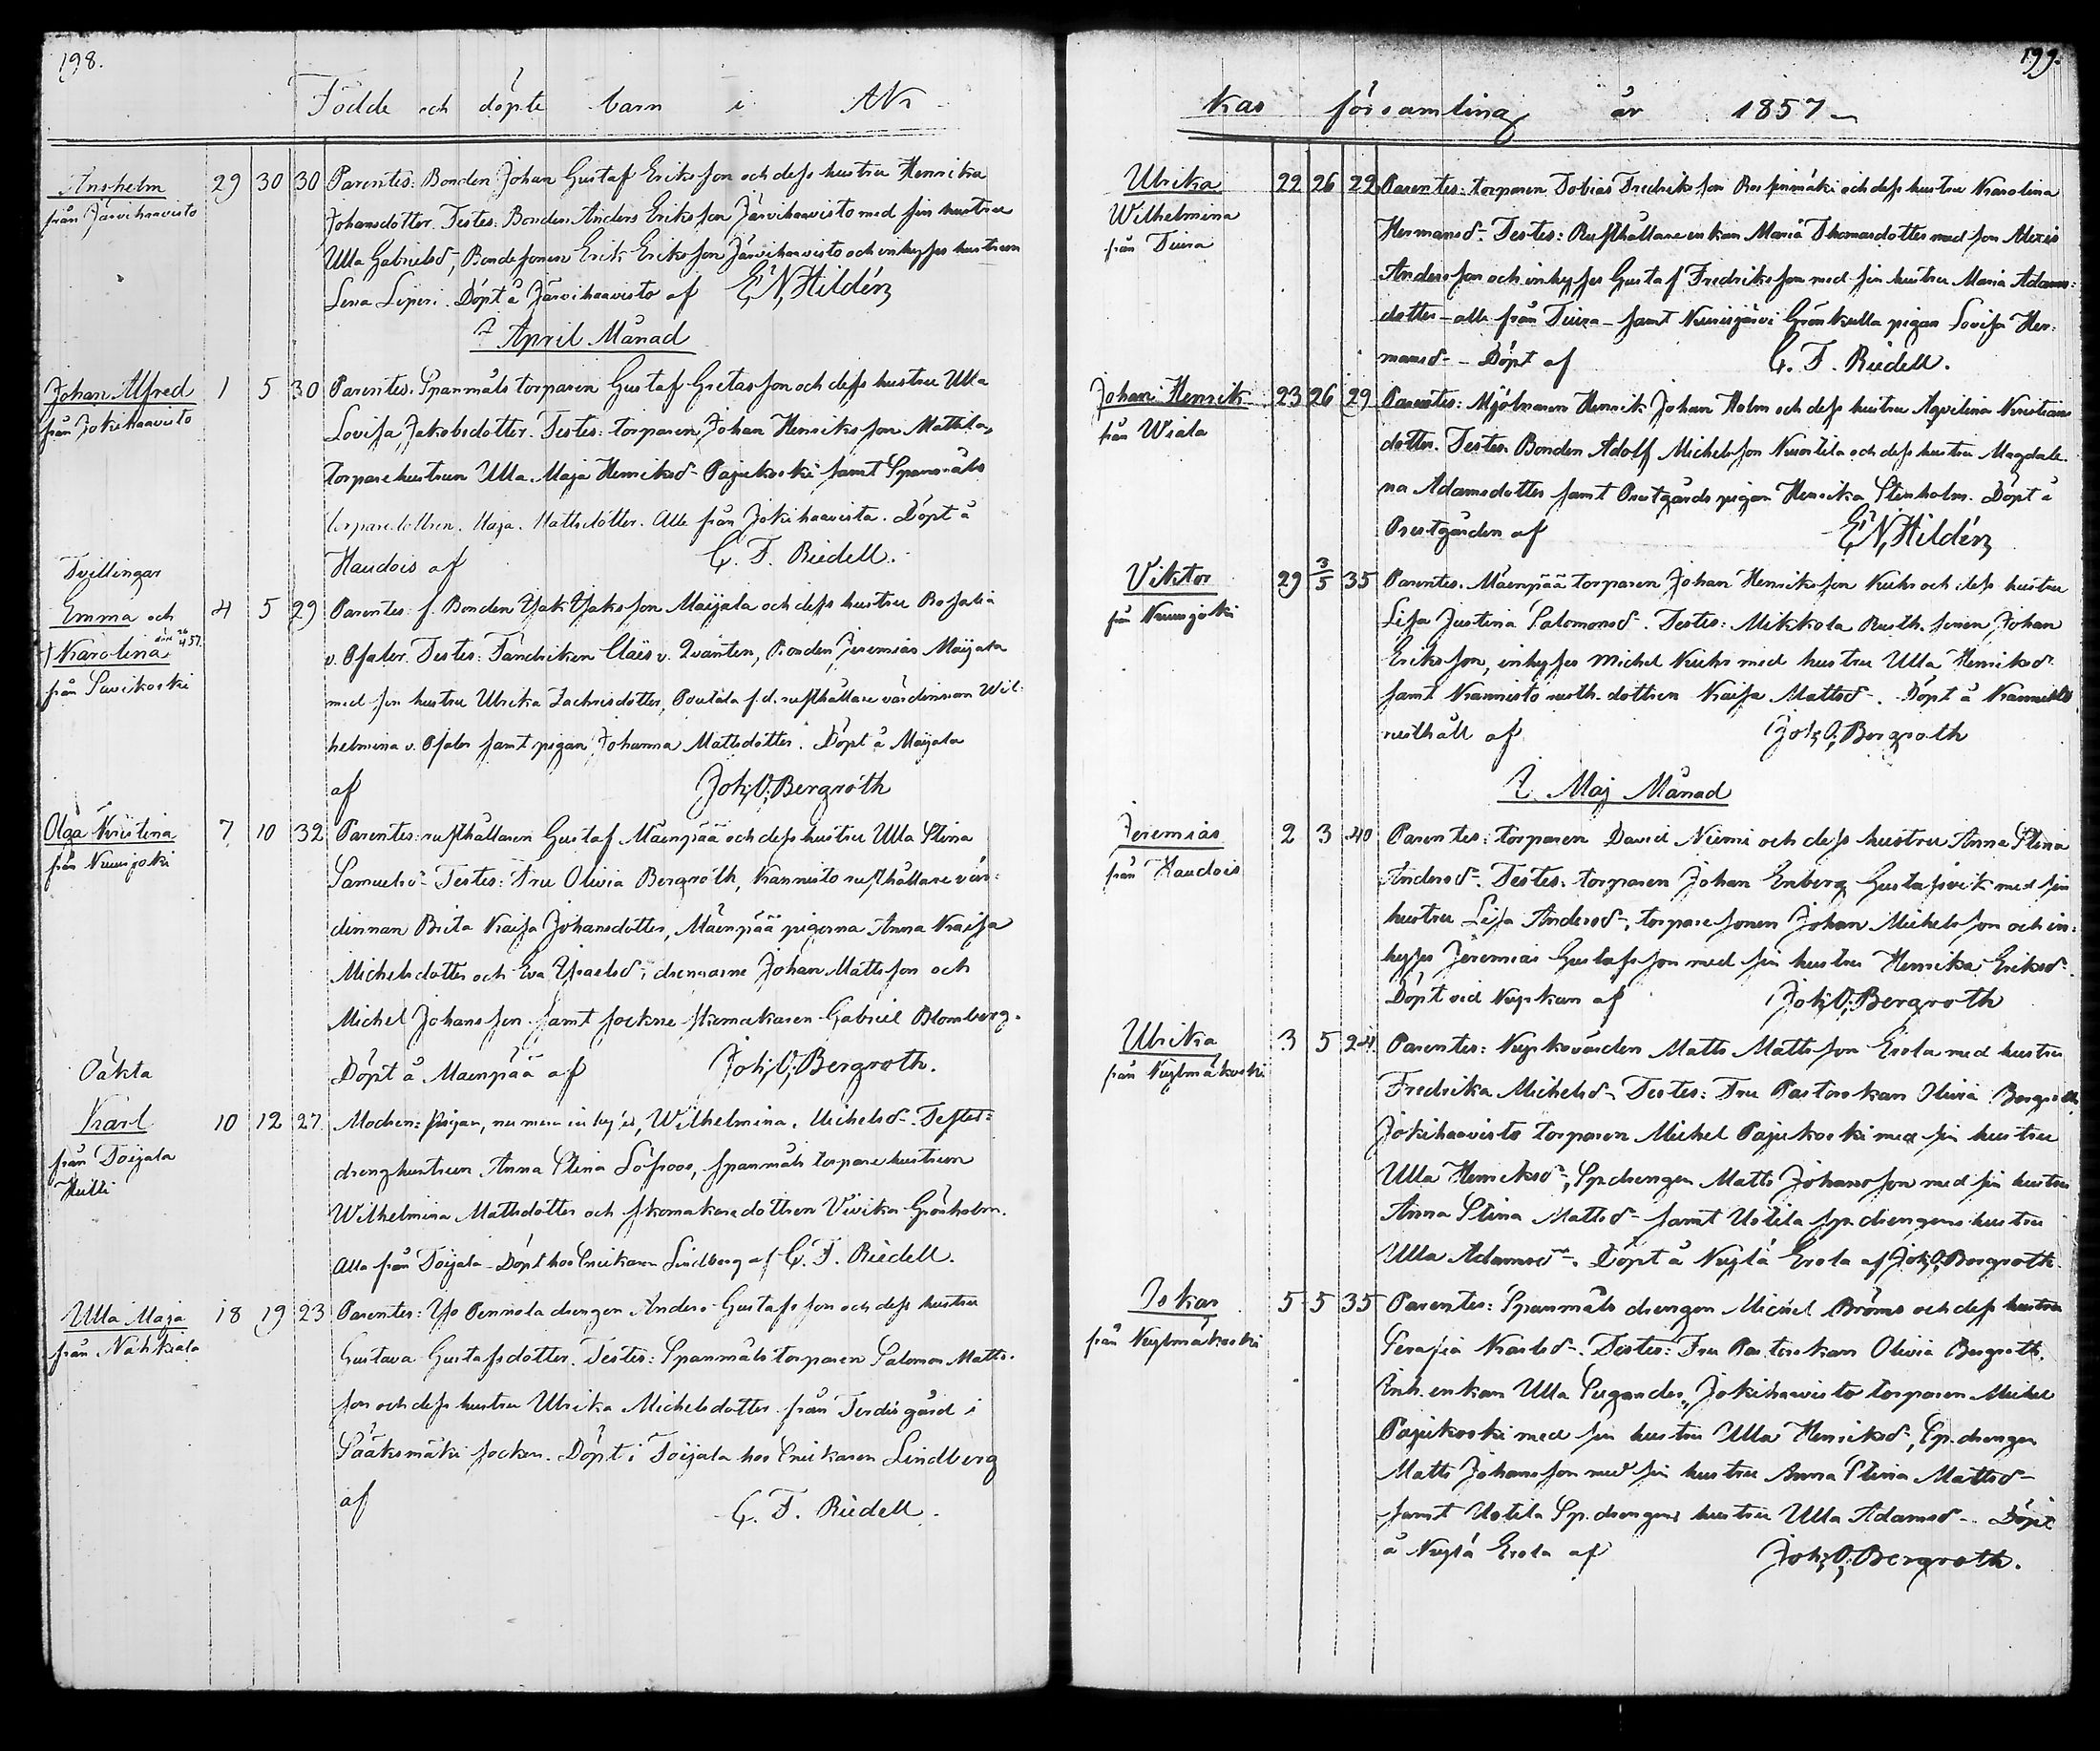 198.
Födde och döpte barn i AK
Anshelm 29 30 30 Parentes: Bonden Johan Gustaf Eriksson och dess hustru Henrika
från Järvihaavisto Johansdotter. Testes: Bonden Anders Eriksson Järvihaavisto med sin hustru
Ulla Gabrielsd, Bondesonen Erik Eriksson Järvihaavisto och inhyses hustrun
Lena Liperi. Döpt å Järvihaavisto af E. N. Hildén
April Månad
Johan Alfred 1 5 30 Parentes: Spanmåls torparen Gustaf Gretasson och dess hustru Ulla
från Jokihaavisto Lovisa Jakobsdotter. Testes: torparen Johan Henriksson Mattila,
torparehustrun Ulla Maja Henriksd- Pajukoski samt Spanmåls
torparedottren Maja Mattsdotter. Alle från Jokihaavista. Döpt å
Haudois af C. F. Riedell.
Tvillingar
Emma och 4 5 29 Parentes: f. Bonden Isak Isaksson Maijala och dess hustru Rosalia
† Karolina v. Qfaler. Testes: Fändriken Claës v. Qvanten, Bonden Jeremias Maijala
från Savikoski med sin hustru Ulrika Zachrisdotter, Poutala f.d. rusthållare värdinnan Wil-
helmina v. Qfaler samt pigan Johanna Mattsdotter. Döpt å Maijala
af Joh. O. Bergroth
Olga Kristina 7 10 32 Parentes: rusthållaren Gustaf Mäenpää och dess hustru Ulla Stina
från Nuusjoki Samuelsd- Testes: Fru Olivia Bergroth, Kannisto rusthållare vär-
dinnan Brita Kaisa Johansdotter, Mäenpää pigorna Anna Kaisa
Michelsdotter och Eva Israelsd; drengarne Johan Mattsson och
Michel Johansson samt sockne skomakaren Gabriel Blomberg.
Döpt å Maenpää af Joh. O. Bergroth.
Oäkta
Karl 10 12 27 Modren: Pigan, nu mera inhyses, Wilhelmina Michelsd-. Testes:
från Toijala drenghustrun Anna Stina Löfroos, spanmåls torparehustrun
Hulli Wilhelmina Mattsdotter och skomakaredottren Vivika Grönholm.
Alla från Toijala - Döpt hos Snickaren Lindberg af C. F. Riedell.
Ulla Maja 18 19 23 Parentes: Yso Pennola drengen Anders Gustafsson och dess hustru
från Nahkiala Gustava Gustafsdotter. Testes: Spanmåls torparen Salomon Matts-
son och dess hustru Ulrika Michelsdotter från Terdis gård i
Sääksmäki socken. Döpt i Toijala hos Snickaren Lindberg
af C. F. Riedell.
199.
kas församling år 1857
Ulrika 22 26 22 Parentes: torparen Tobias Fredriksson och dess hustru Karolina
Wilhelmina Hermansd-. Testes: Rusthållare enkan Maria Thomasdotter med son Alexis
från Tiura Andersson och inhyses Gustaf Fredriksson med sin hustru Maria Adams-
dotter - alle från Tiura - samt Kurisjärvi Grönkulla pigan Lovisa Her-
mansd- - Döpt af C. F. Riedell.
Johan Henrik 23 26 29 Parentes: Mjölnaren Henrik Johan Holm och dess hustru Aqvilina Kristians
från Wiala dotter. Testes: Bonden Adolf Michelsson Kurvitila och dess hustru Magdale-
na Adamsdotter samt Prestgårds pigan Henrika Stenholm. Döpt å
Prestgården af E. N. Hildén
Viktor 29 3/5 35 Parentes. Mäenpää torparen Johan Henriksson Kuhr och dess hustru
från Nuusjoki Lisa Justina Salomonsd-. Testes: Mikkola Rusth. sonen Johan
Eriksson, inhyses Michel Kuhr med hustru Ulla Henriksd-
samt Kannisto rusth. dottren Kaisa Mattsd-. Döpt å Kannisto
rusthåll af Joh. O. Bergroth
Maj Månad
Jeremias 2 3 40 Parentes: torparen David Niemi och dess hustru Anna Stina
från Haudois Andersd-. Testes: torparen Johan Enberg Gustafsvik med sin
hustru Lisa Andersd-, torparesonen Johan Michelsson och in-
hyses Jeremias Gustafsson med sin hustru Henrika Eriksd-
Döpt vid Kyrkan af Joh. O. Bergroth
Ulrika 3 5 24 Parentes: Kyrkovärden Matts Mattsson Erola med hustru
från Kylmäkoski Fredrika Michelsd- Testes: Fru Pastorskan Olivia Bergroth
Jokihaavisto torparen Michel Pajukoski med sin hustru
Ulla Henriksd-, Sp.drengen Matts Johansson med sin hustru
Anna Stina Mattsd- samt Uotila sp.drengens hustru
Ulla Adamsd-. Döpt å Kuylä Erola af Joh. O. Bergroth.
Oskar 5 5 35 Parentes: Spanmåls drengen Michel Bröms och dess hustru
från Kuylmäkoski Serafia Karlsd-. Testes: Fru Pastorskan Olivia Bergroth.
Inh. enkan Ulla Pegander, Jokihaavisto torparen Michel
Pajukoski med sin hustru Ulla Henriksd-, Sp.drengen
Matts Johansson med sin hustru Anna Stina Mattsd-
samt Uotila Sp.drengens hustru Ulla Adamsd-. Döpt
å Kuylä Erola af Joh. O. Bergroth.